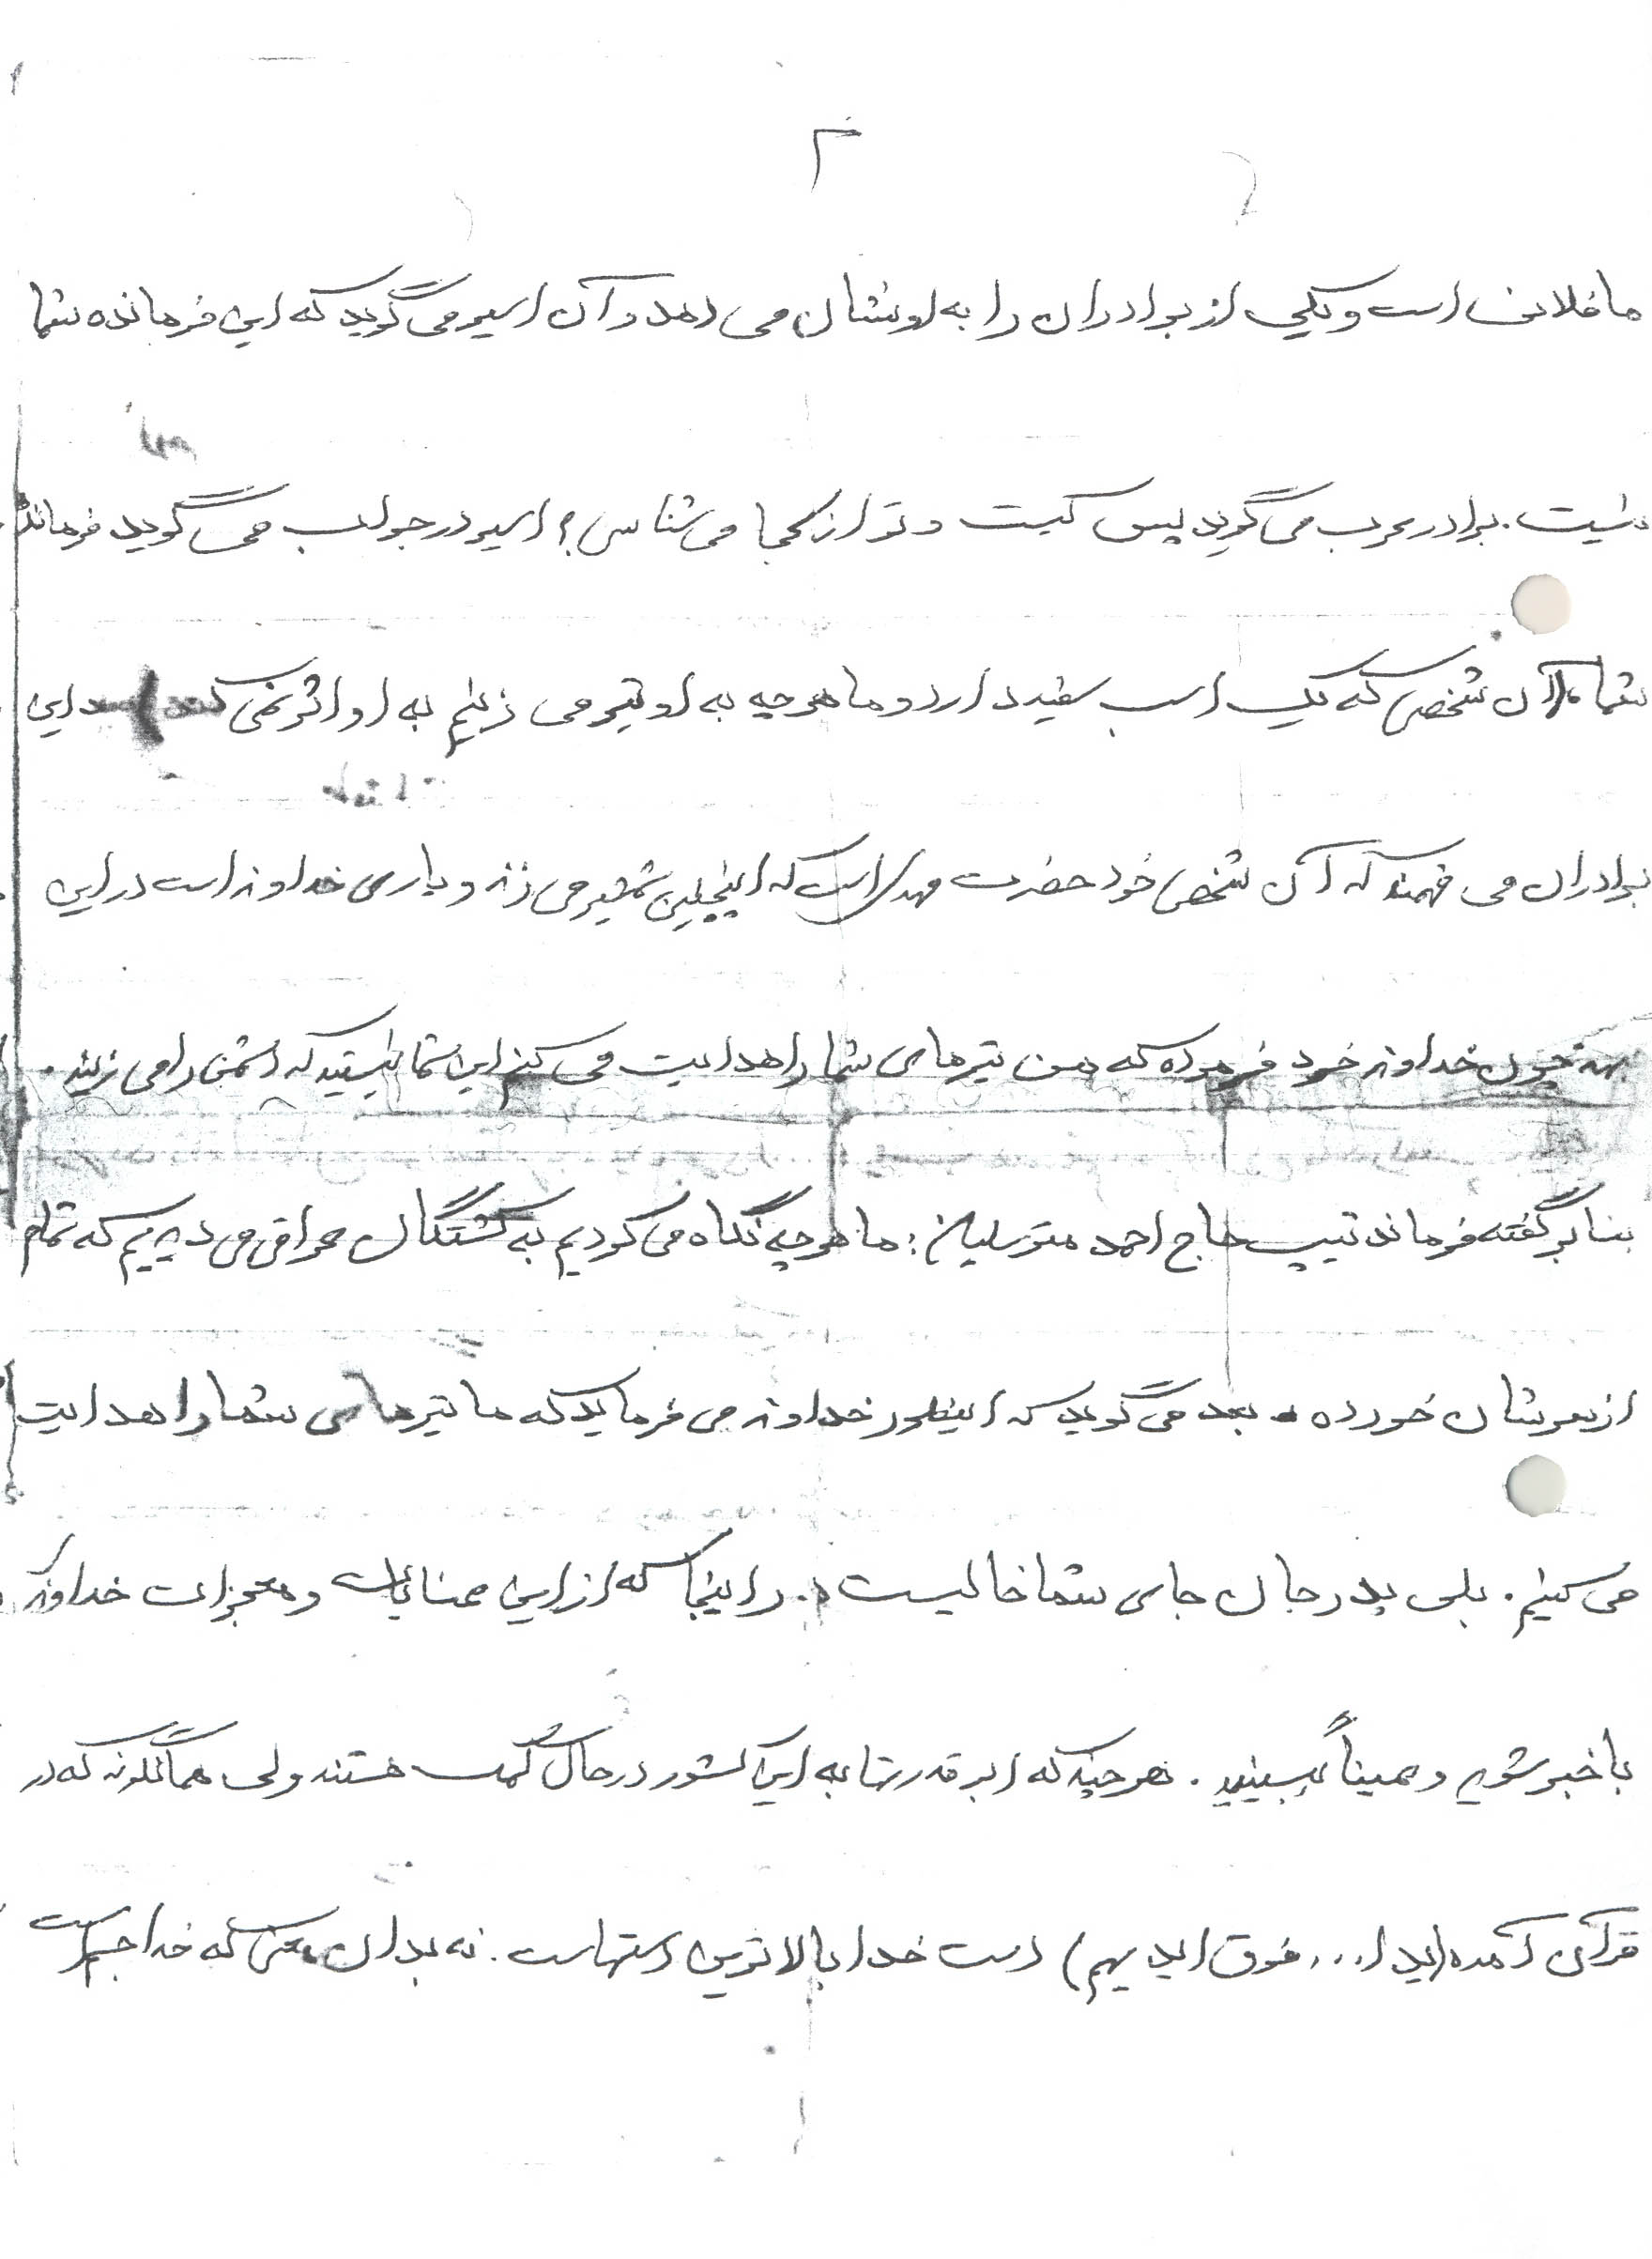 ۲
ما فلانی است و یکی از برادران را به او نشان می دهد و آن اسیر می گوید که این فرمانده شما
نیست. برادر عرب می گوید پس کیست و تو از کجا می شناسی؟ اسیر در جواب می گوید فرمانده
شما آن شخصی که یک اسب سفید دارد و ما هرچه به او تیر می زنیم به او اثر نمی کند این
برادران می فهمند که آن شخص خود حضرت مهدی است که اینچنین شمشیر می زند و یاری خداوند است در این
چون خداوند خود فرموده که من تیرهای شما را هدایت می کنم این شما نیستید که دشمن را می زنید.
بنا بر گفته فرمانده تیپ حاج احمد متوسلیان: ما هرچه نگاه می کردیم به کشتگان عراقی می دیدیم که تمام
از سرشان خورده بعد می گوید که اینطور خداوند می فرماید که ما تیرهای شما را هدایت
می کنیم. بلی پدر جان جای شما خالیست در اینجا که از این عنایات و معجزات خداوند
با خبر شوید و عیناً ببینید. هرچند که ابرقدرتها به این کشور در حال کمک هستند ولی همانگونه که در
قرآن آمده (ید ا... فوق ایدیهم) دست خدا بالاترین دستهاست. نه بدان معنی که خدا جسم است